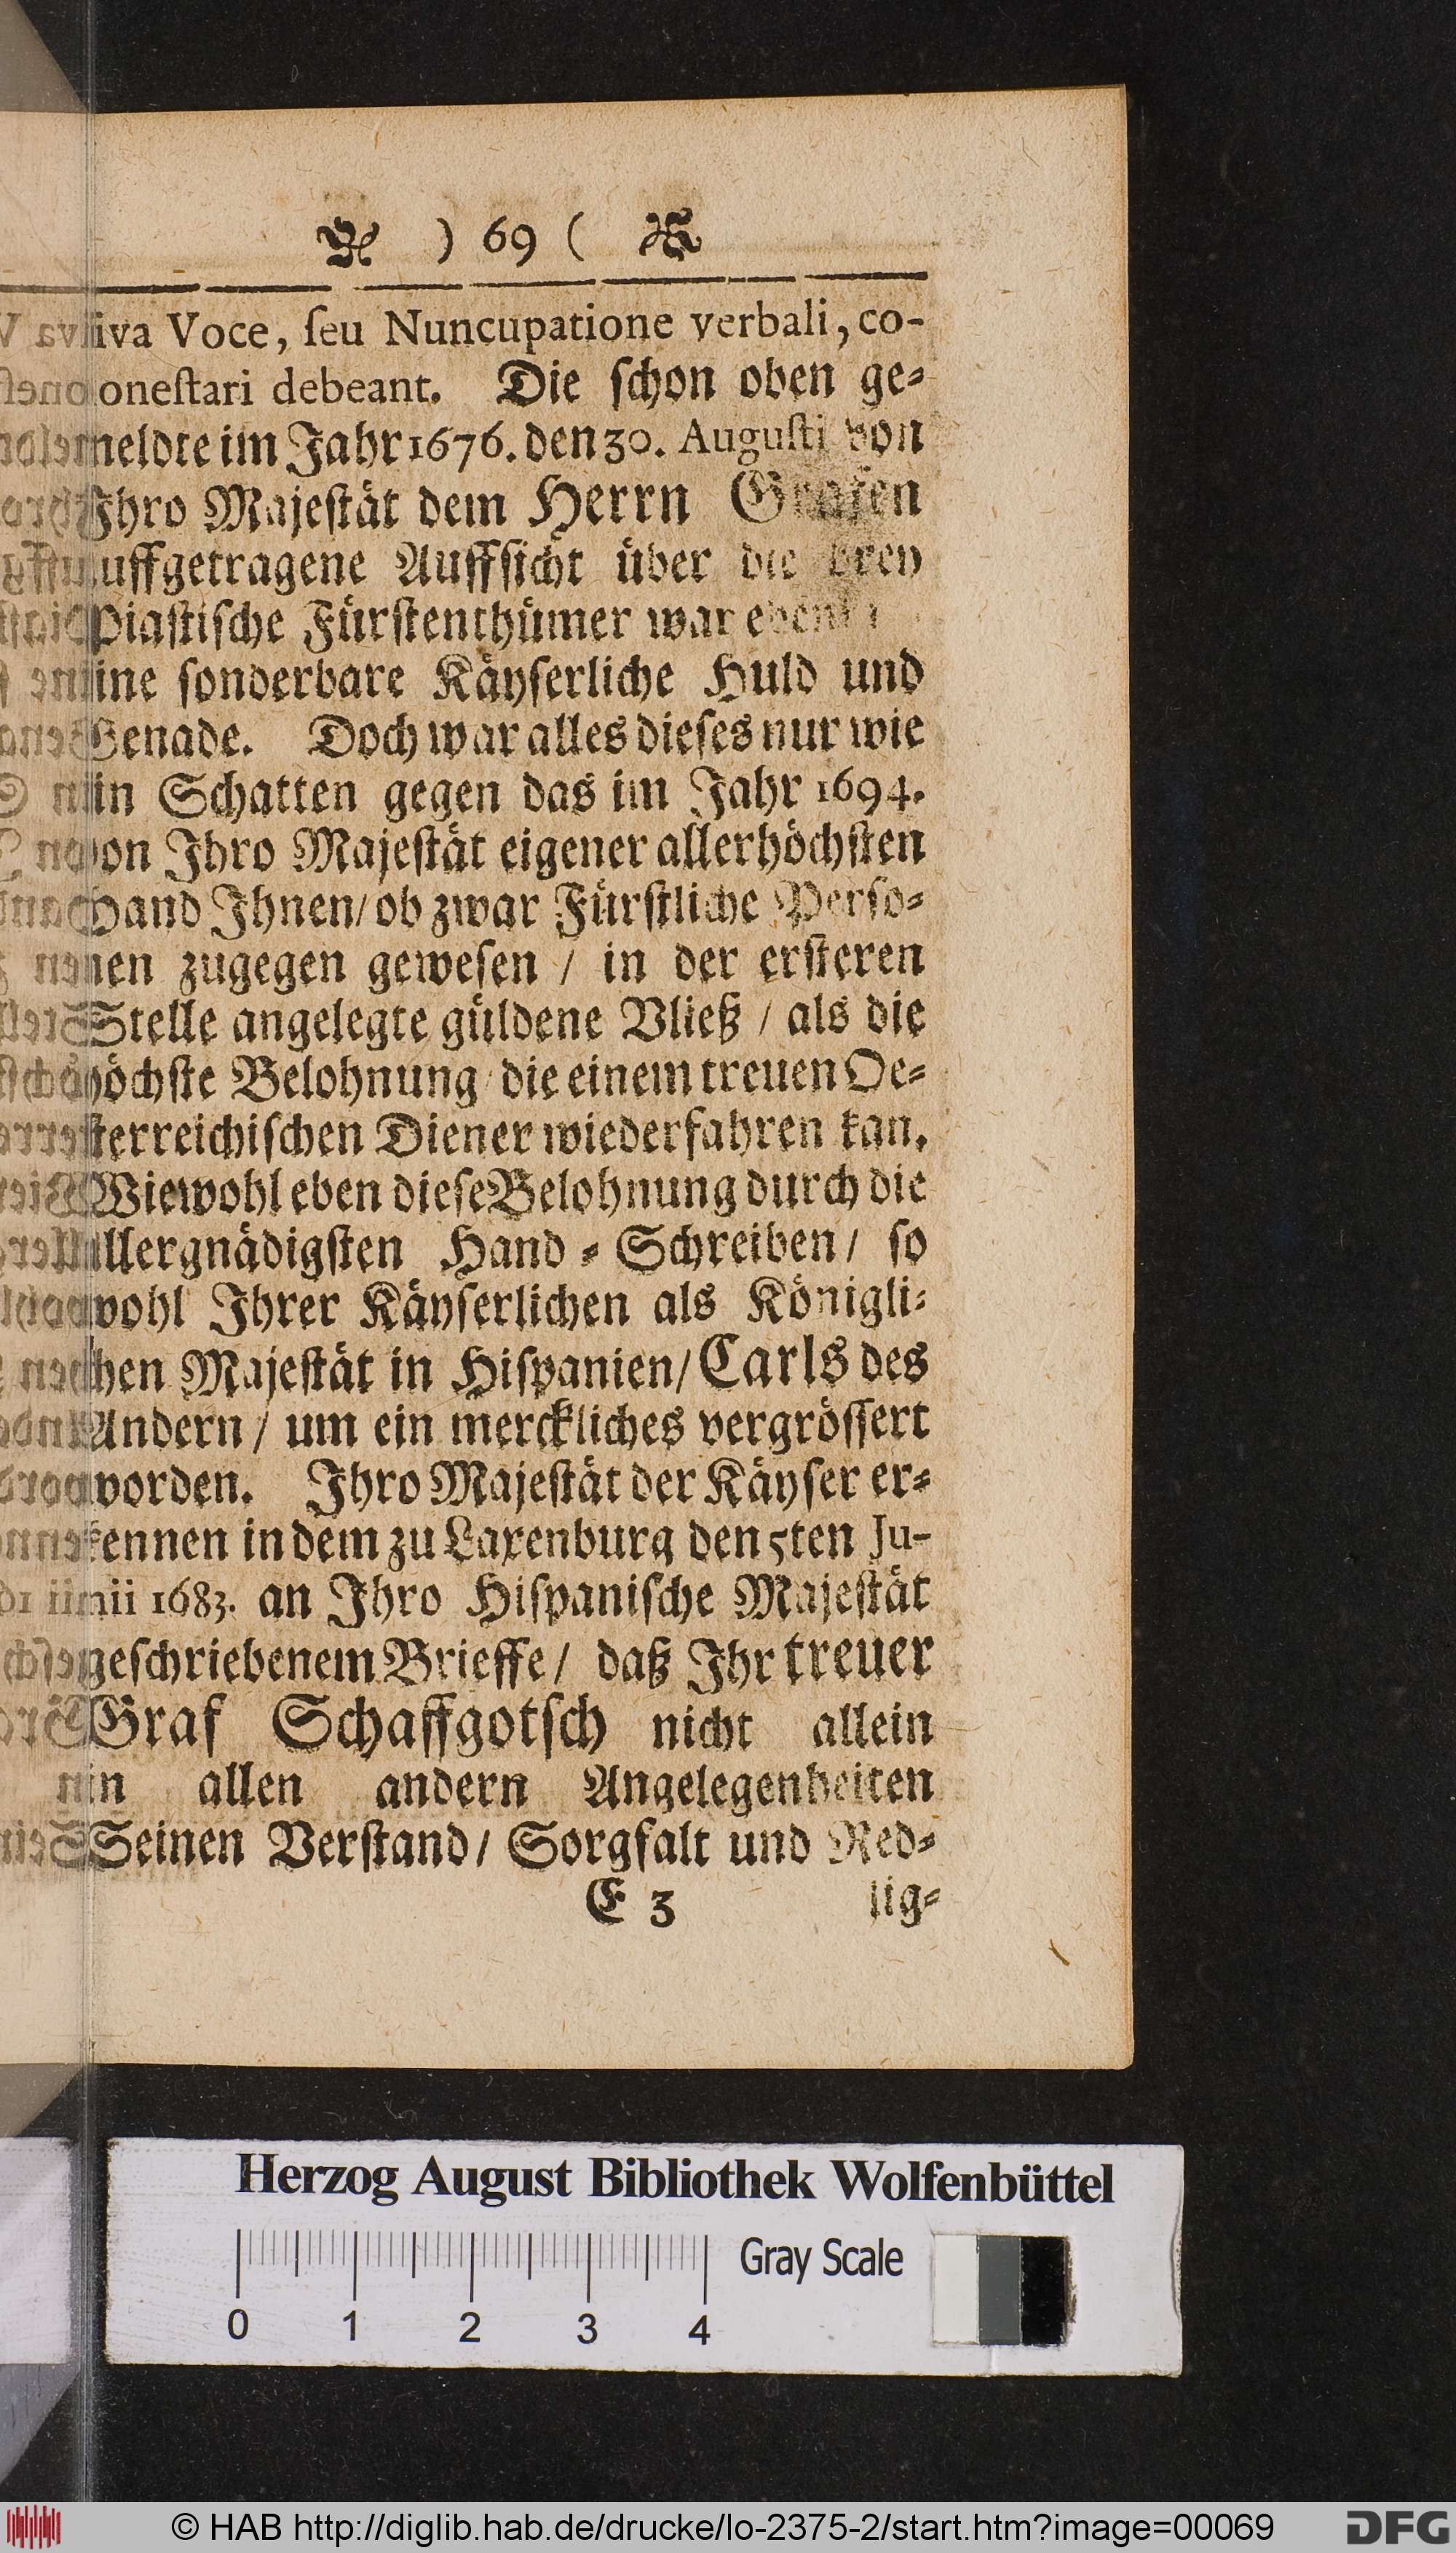 ) 69 (
iva Voce, ſeu Nuncupatione verbali, co-
oneſtari debeant. Die ſchon oben ge⸗
meldte im Jahr 1676. den 30. Auguſti von
Ihro Majeſtät dem Herrn Grafen
uffgetragene Auffſicht über die drey
Piaſtiſche Fürſtenthümer war
ine ſonderbare Käyſerliche Huld und
Genade. Doch war alles dieſes nur wie
in Schatten gegen das im Jahr 1694.
von Ihro Majeſtät eigener allerhöchſten
Hand Ihnen/ ob zwar Fürſtliche Perſo⸗
nen zugegen geweſen / in der erſteren
Stelle angelegte güldene Vließ / als die
höchſte Belohnung die einem treuen Oe⸗
ſterreichiſchen Diener wiederfahren kan.
Wiewohl eben dieſe Belohnung durch die
allergnädigſten Hand⸗Schreiben/ ſo
wohl Ihrer Käyſerlichen als Königli⸗
chen Majeſtät in Hiſpanien/ Carls des
Andern / um ein merckliches vergröſſert
worden. Ihro Majeſtät der Käyſer er⸗
kennen in dem zu Laxenburg den 5ten Ju-
nii 1683. an Ihro Hiſpaniſche Majeſtät
geſchriebenem Brieffe/ daß Ihr treuer
Graf Schaffgotſch nicht allein
in allen andern Angelegenheiten
Seinen Verſtand/ Sorgfalt und Red⸗
E 3 lig⸗
Herzog August Bibliothek Wolfenbüttel
Gray Scale
0 1 2 3 4
© HAB http://diglib.hab.de/drucke/lo-2375-2/start.htm?image=00069
DFG